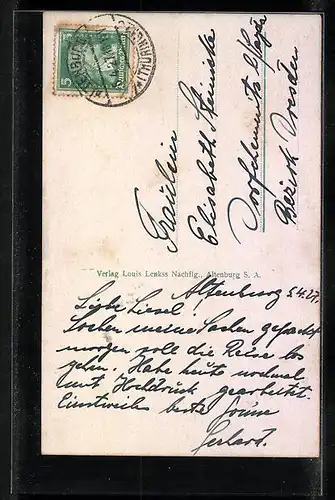 5
Deutsches Reich
Fräulein
Elisabeth Steinicke
Dorfchemnitz b/Sayda
Bezirk Dresden
Verlag Louis Lenkss Nachflg., Altenburg S. A.
Altenburg 5.4.27.
Liebe Liesel!
Soeben meine Sachen gepackt
morgen soll die Reise los
gehen. Habe heute nochmal
mit Hochdruck gearbeitet.
Einstweilen beste Grüsse
Gerhard.